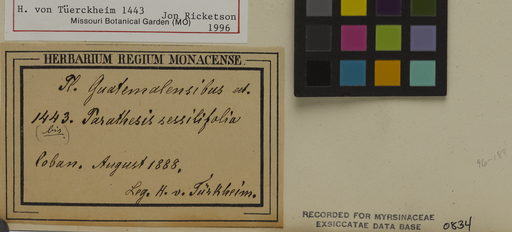 H. von Tuerckheim 1443
Jon Ricketson
Missouri Botanical Garden (MO)
1996
HERBARIUM REGIUM MONACENSE.
Pl. Guatemalensibus ed.
1443. Parathesis sessilifolia
(bis)
Coban. August 1888.
Leg. H. v. Türkheim.
96-188
RECORDED FOR MYRSINACEAE
EXSICCATAE DATA BASE 0834